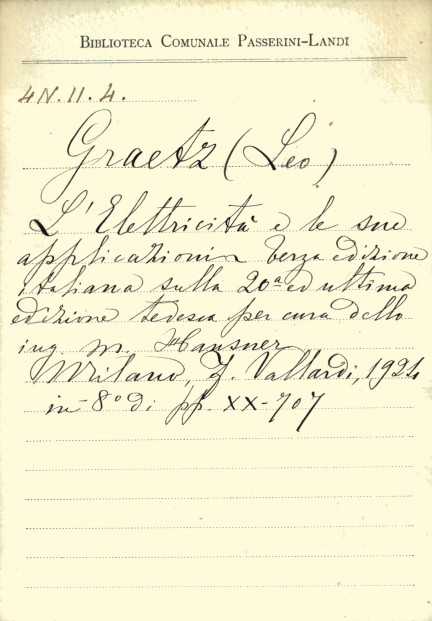 BIBLIOTECA COMUNALE PASSERINI-LANDI
4N.II.4.
Graetz (Leo)
L'Elettricità e le sue
applicazioni ~ terza edizione
italiana sulla 20ª ed ultima
edizione tedesca per cura dello
ing. M. Hausner
Milano, F. Vallardi, 1924
in-8° di pp. XX-707